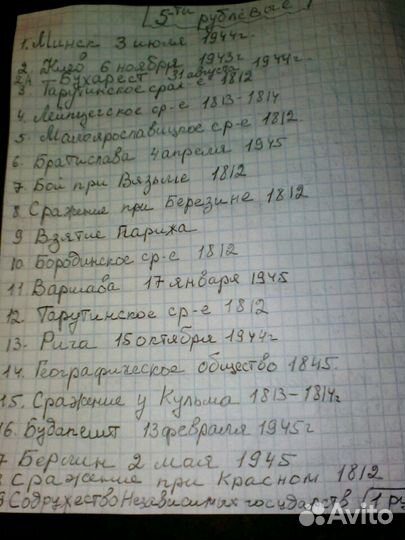 5-ти рублевые
1. Минск 3 июля 1944г.
2. Киев 6 ноября 1943г
2/1 Бухарест 31 августа 1944г.
3 Тарутинское сраж-е 1812
4. Лейпцегское ср-е 1813-1814
5. Малоярославицкое ср-е 1812.
6. Братислава 4 апреля 1945
7. Бой при Вязьме 1812
8. Сражение при Березине 1812
9 Взятие Парижа
10 Бородинское ср-е 1812
11 Варшава 17 января 1945
12 Тарутинское ср-е 1812
13. Рига 15 октября 1944г
14. Географическое общество 1845.
15. Сражение у Кульма 1813-1814г
16. Будапешт 13 февраля 1945г
7 Берлин 2 мая 1945
8 Сражение при Красном 1812
9 Содружество Независимых государств 1 ру
Avito